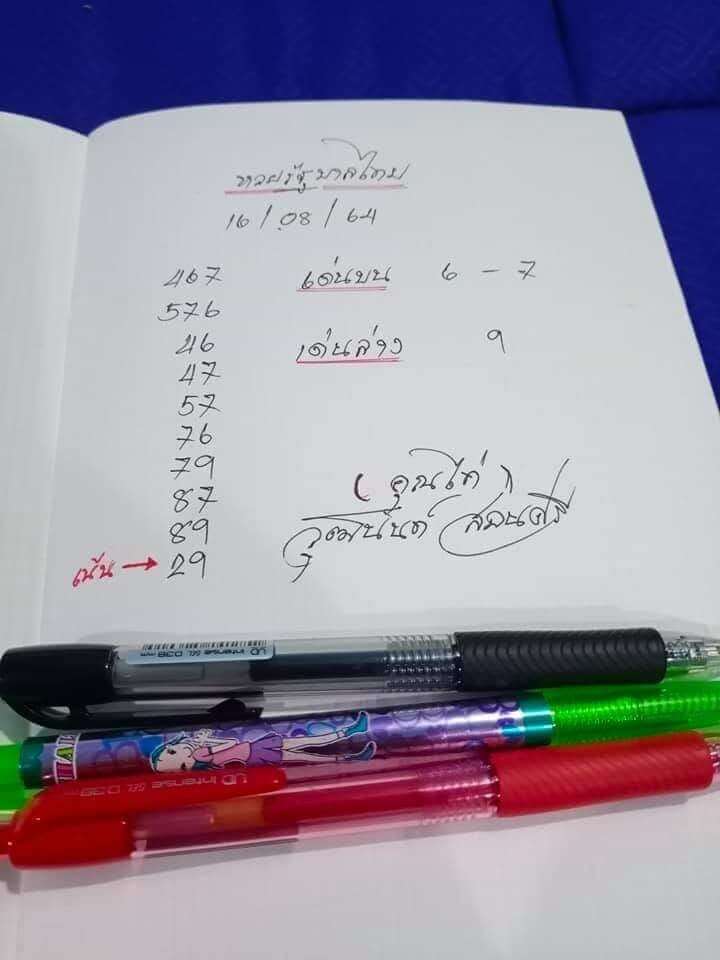 หวยรัฐบาลไทย
16/08/64
467 เด่นบน 6 - 7
576
46 เด่นล่าง 9
47
57
76
79
87
89
เน้น → 29
วุฒินันต์
UD Intense GEL 0.38 mm
UD Intense GEL 0.38 mm